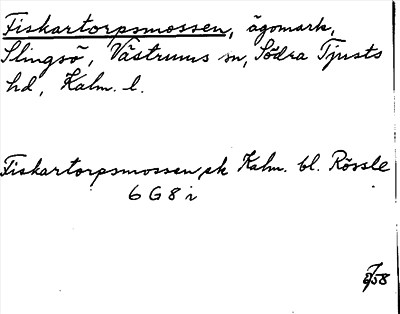 Fiskartorpsmossen, ägomark,
Slingsö, Västrums sn, Södra Tjusts
hd, Kalm. l.
Fiskartorpsmossen, ek Kalm. bl. Rössle
6 G 8 i